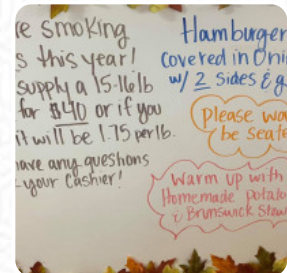 re smoking
s this year!
supply a 15-16lb
for $40 or if you
it will be 1.75 per lb.
have any questions
your Cashier!
Hamburger
Covered in Oni
w/ 2 Sides & g
Please wa
be seate
Warm up with
Homemade Potato
& Brunswick Stew